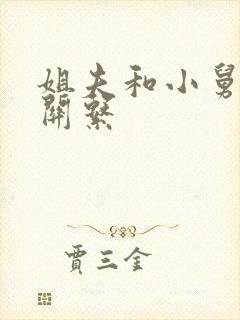 姐夫和小舅
關繫
賈三金